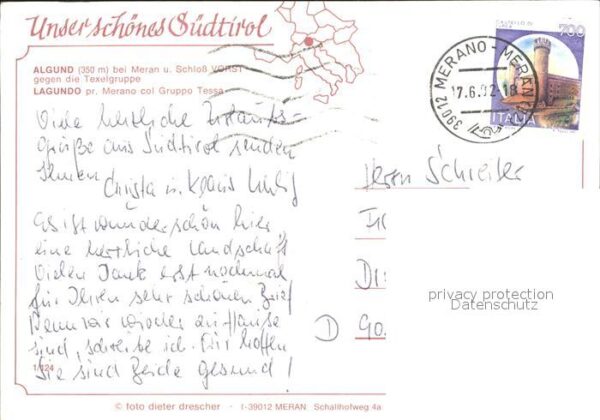 Unser schönes Südtirol
ALGUND (350 m) bei Meran u. Schloß VORST
gegen die Texelgruppe
LAGUNDO pr. Merano col Gruppo Tessa
700
39012 MERANO - MERAN
17.6.92-18
ITALIA
Viele herzliche Urlaubs-
grüße aus Südtirol senden
Ihnen Christa u. Klaus
Es ist wunderschön hier,
eine herrliche Landschaft
Vielen Dank erst nochmal
für Ihren sehr schönen Brief
Wenn wir wieder zu Hause
sind, schreibe ich. Wir hoffen
Sie sind beide gesund!
Herrn Schreiber
D
privacy protection
Datenschutz
1/124
© foto dieter drescher - I-39012 MERAN Schallhofweg 4a